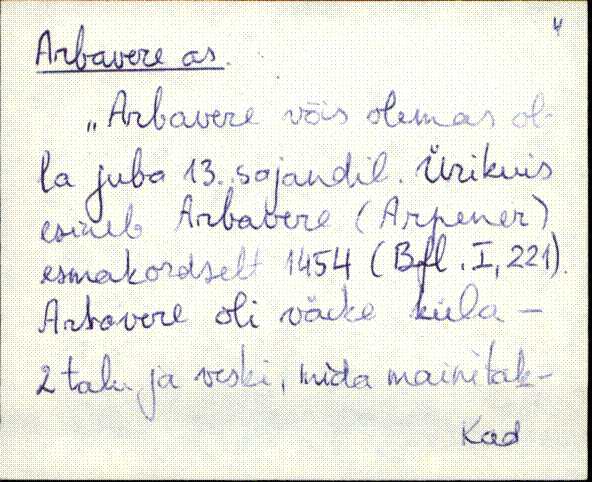 4
Arbavere as.
„Arbavere võis olemas ol-
la juba 13. sajandil. Ürikuis
esineb Arbavere (Arpener)
esmakordselt 1454 (Bfl. I, 221).
Arbavere oli väike küla –
2 talu ja veski, mida mainitak-
Kad